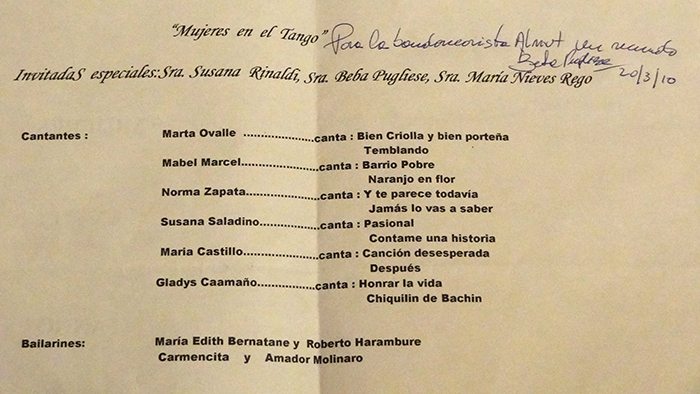 "Mujeres en el Tango" Para la bandoneonista Almut un recuerdo
Beba Pugliese 20/3/10
InvitadaS especiales:Sra. Susana Rinaldi, Sra. Beba Pugliese, Sra. María Nieves Rego
Cantantes : Marta Ovalle ..................canta : Bien Criolla y bien porteña
Temblando
Mabel Marcel...................canta : Barrio Pobre
Naranjo en flor
Norma Zapata..................canta : Y te parece todavía
Jamás lo vas a saber
Susana Saladino..............canta : Pasional
Contame una historia
Maria Castillo..................canta : Canción desesperada
Después
Gladys Caamaño..............canta : Honrar la vida
Chiquilín de Bachin
Bailarines: María Edith Bernatane y Roberto Harambure
Carmencita y Amador Molinaro